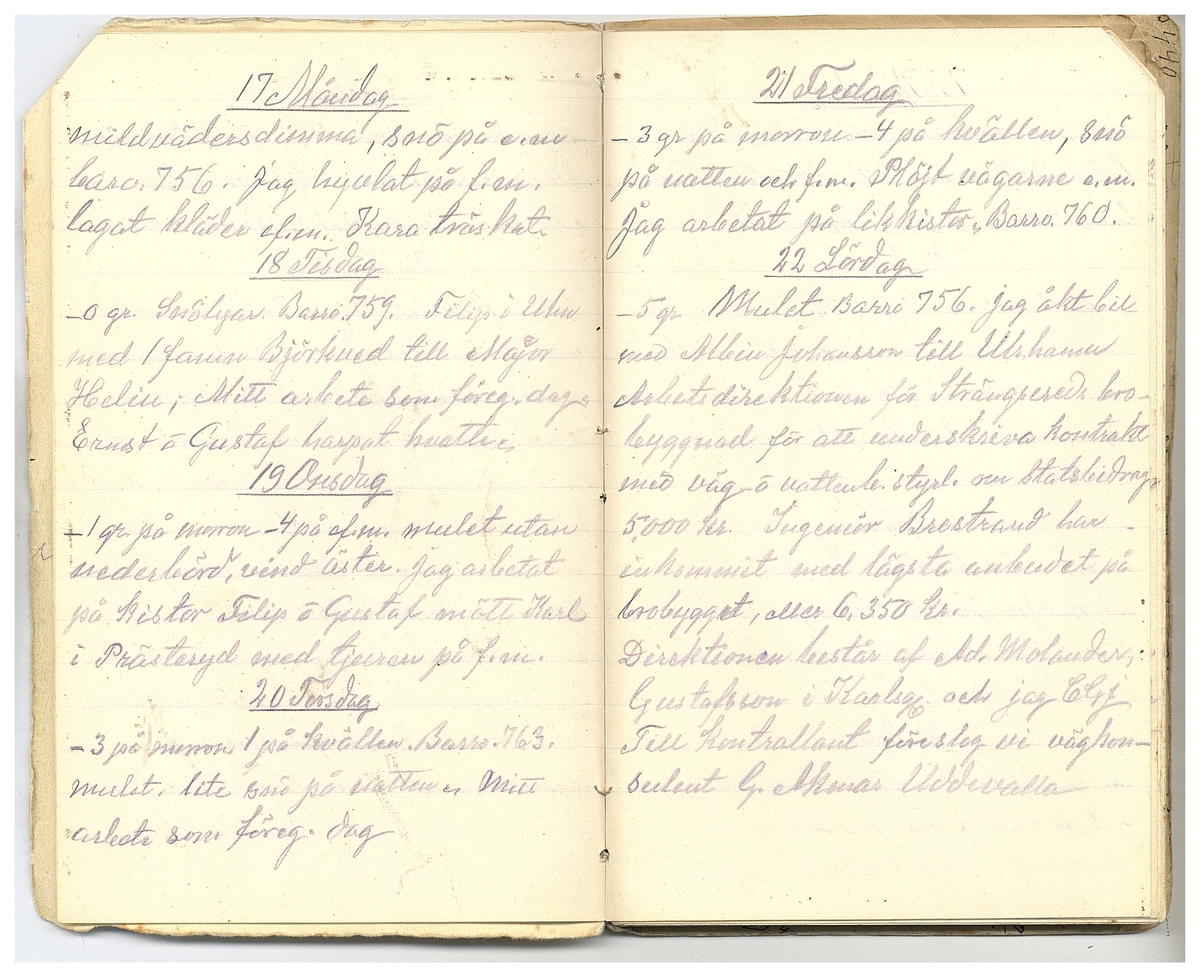 17 Måndag
mildvädersdimma, snö på e.m
baro. 756. Jag hyvlat på f.m.
lagat kläder ef.m. Kara tröskat.
18 Tisdag
-0 gr. Snöbyar Barro. 759. Filip i Uhn
med 1 famn Björkved till Major
Helin, Mitt arbete som föreg. dag.
Ernst o Gustaf harpat hvatte
19 Onsdag
-1 gr. på morron -4 på ef.m. mulet utan
nederbörd, vind öster. Jag arbetat
på kistor Filip o Gustaf mött Karl
i Prästeryd med tjuren på f.m.
20 Torsdag
-3 på morron 1 på kvällen. Barro. 763.
mulet. lite snö på natten. Mitt
arbete som föreg. dag
21 Fredag
-3 gr på morron -4 på kvällen, snö
på natten och f.m. Plöjt vägarne e.m.
Jag arbetat på likkistor, Barro. 760.
22 Lördag
-5 gr Mulet Barro 756. Jag åkt bil
med Albin Johansson till Ulr.hamn
Arbetsdirektionen för Strängsereds bro-
byggnad för att underskriva kontrakt
med väg o vattenb. styrl. om Statsbidrag
5,000 kr. Ingeniör Brostrand har
inkommit med lägsta anbudet på
brobygget, eller 6,350 kr.
Direktionen består af Ad. Molander,
Gustafsson i Karlsg. och jag CGJ
Till kontrallant föreslog vi vägkon-
sulent G. Akmar Uddevalla